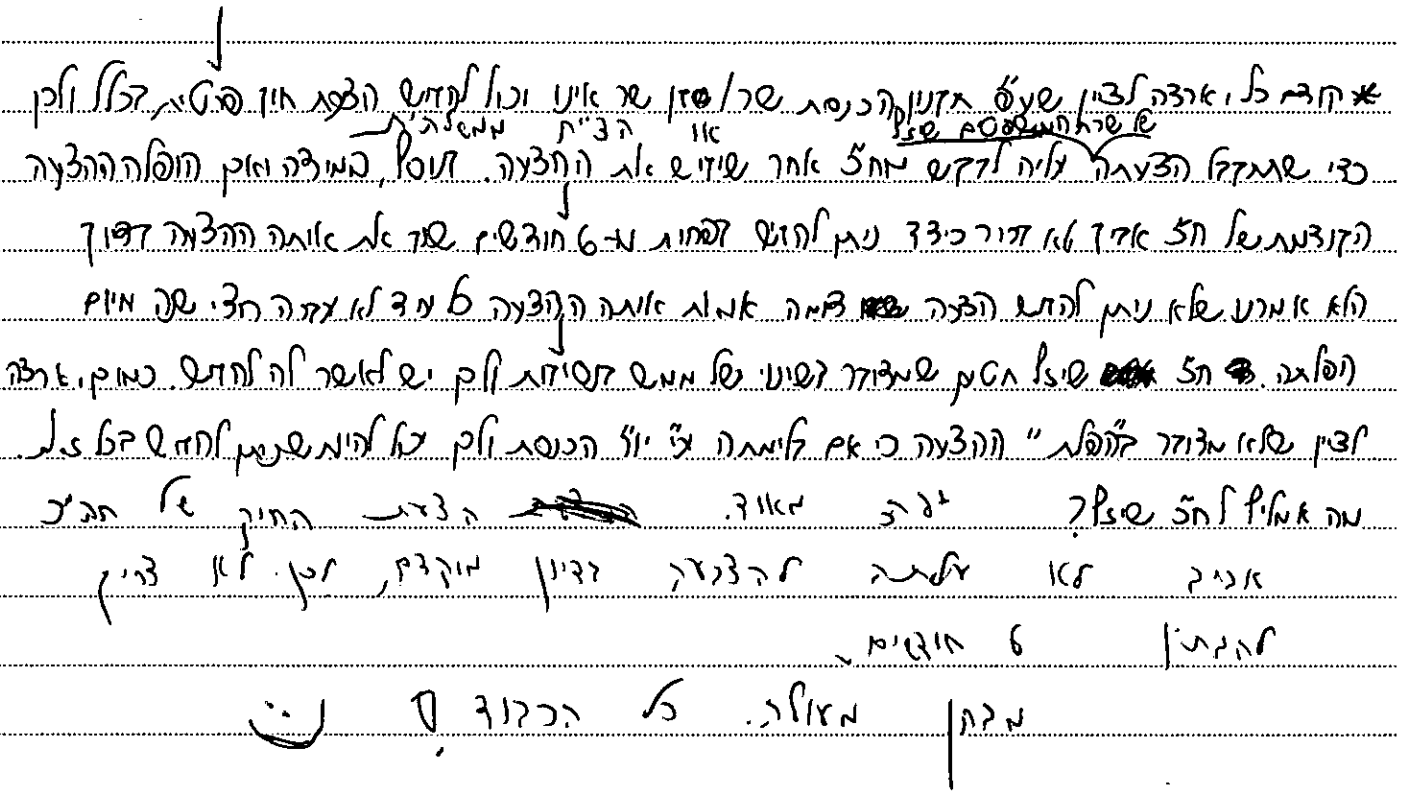 קודם כל, ארצה לציין שעפ"י תקנון הכנסת שר/סגן שר אינו יכול להגיש הצעת חוק פרטית, בכלל ולכן
או הצ"ח ממשלתית
של שרת המשפטים שיזלף
כדי שתתקבל הצעתה עליה לבקש מח"כ אחר שיגיש את ההצעה. בנוסף, במידה ואכן הופלה ההצעה
הקודמת של ח"כ אביב לא ברור כיצד ניתן להגיש בפחות מ-6 חודשים שוב את אותה ההצעה בדיוק
הלא אמרנו שלא ניתן להגיש הצעה דומה או את אותה ההצעה כל עוד לא עברה חצי שנה מיום
הפלתה. ח"כ שיזלף חטים שמדובר בשינוי של ממש בנסיבות ולכן יש לאשר לה להגיש. כמו כן, ארצה
לציין שלא מדובר ב"הפלת" ההצעה כי אם בלימתה ע"י יו"ר הכנסת ולכן יכול להיות שניתן להגיש בכל זאת.
מה אמליץ לח"כ שיזלף? מאוד. הצעת החוק של חה"כ
אביב לא עלתה להצבעה בדיון מוקדם, לכן לא צריך
להמתין 6 חודשים
מבחן מעולה. כל הכבוד!